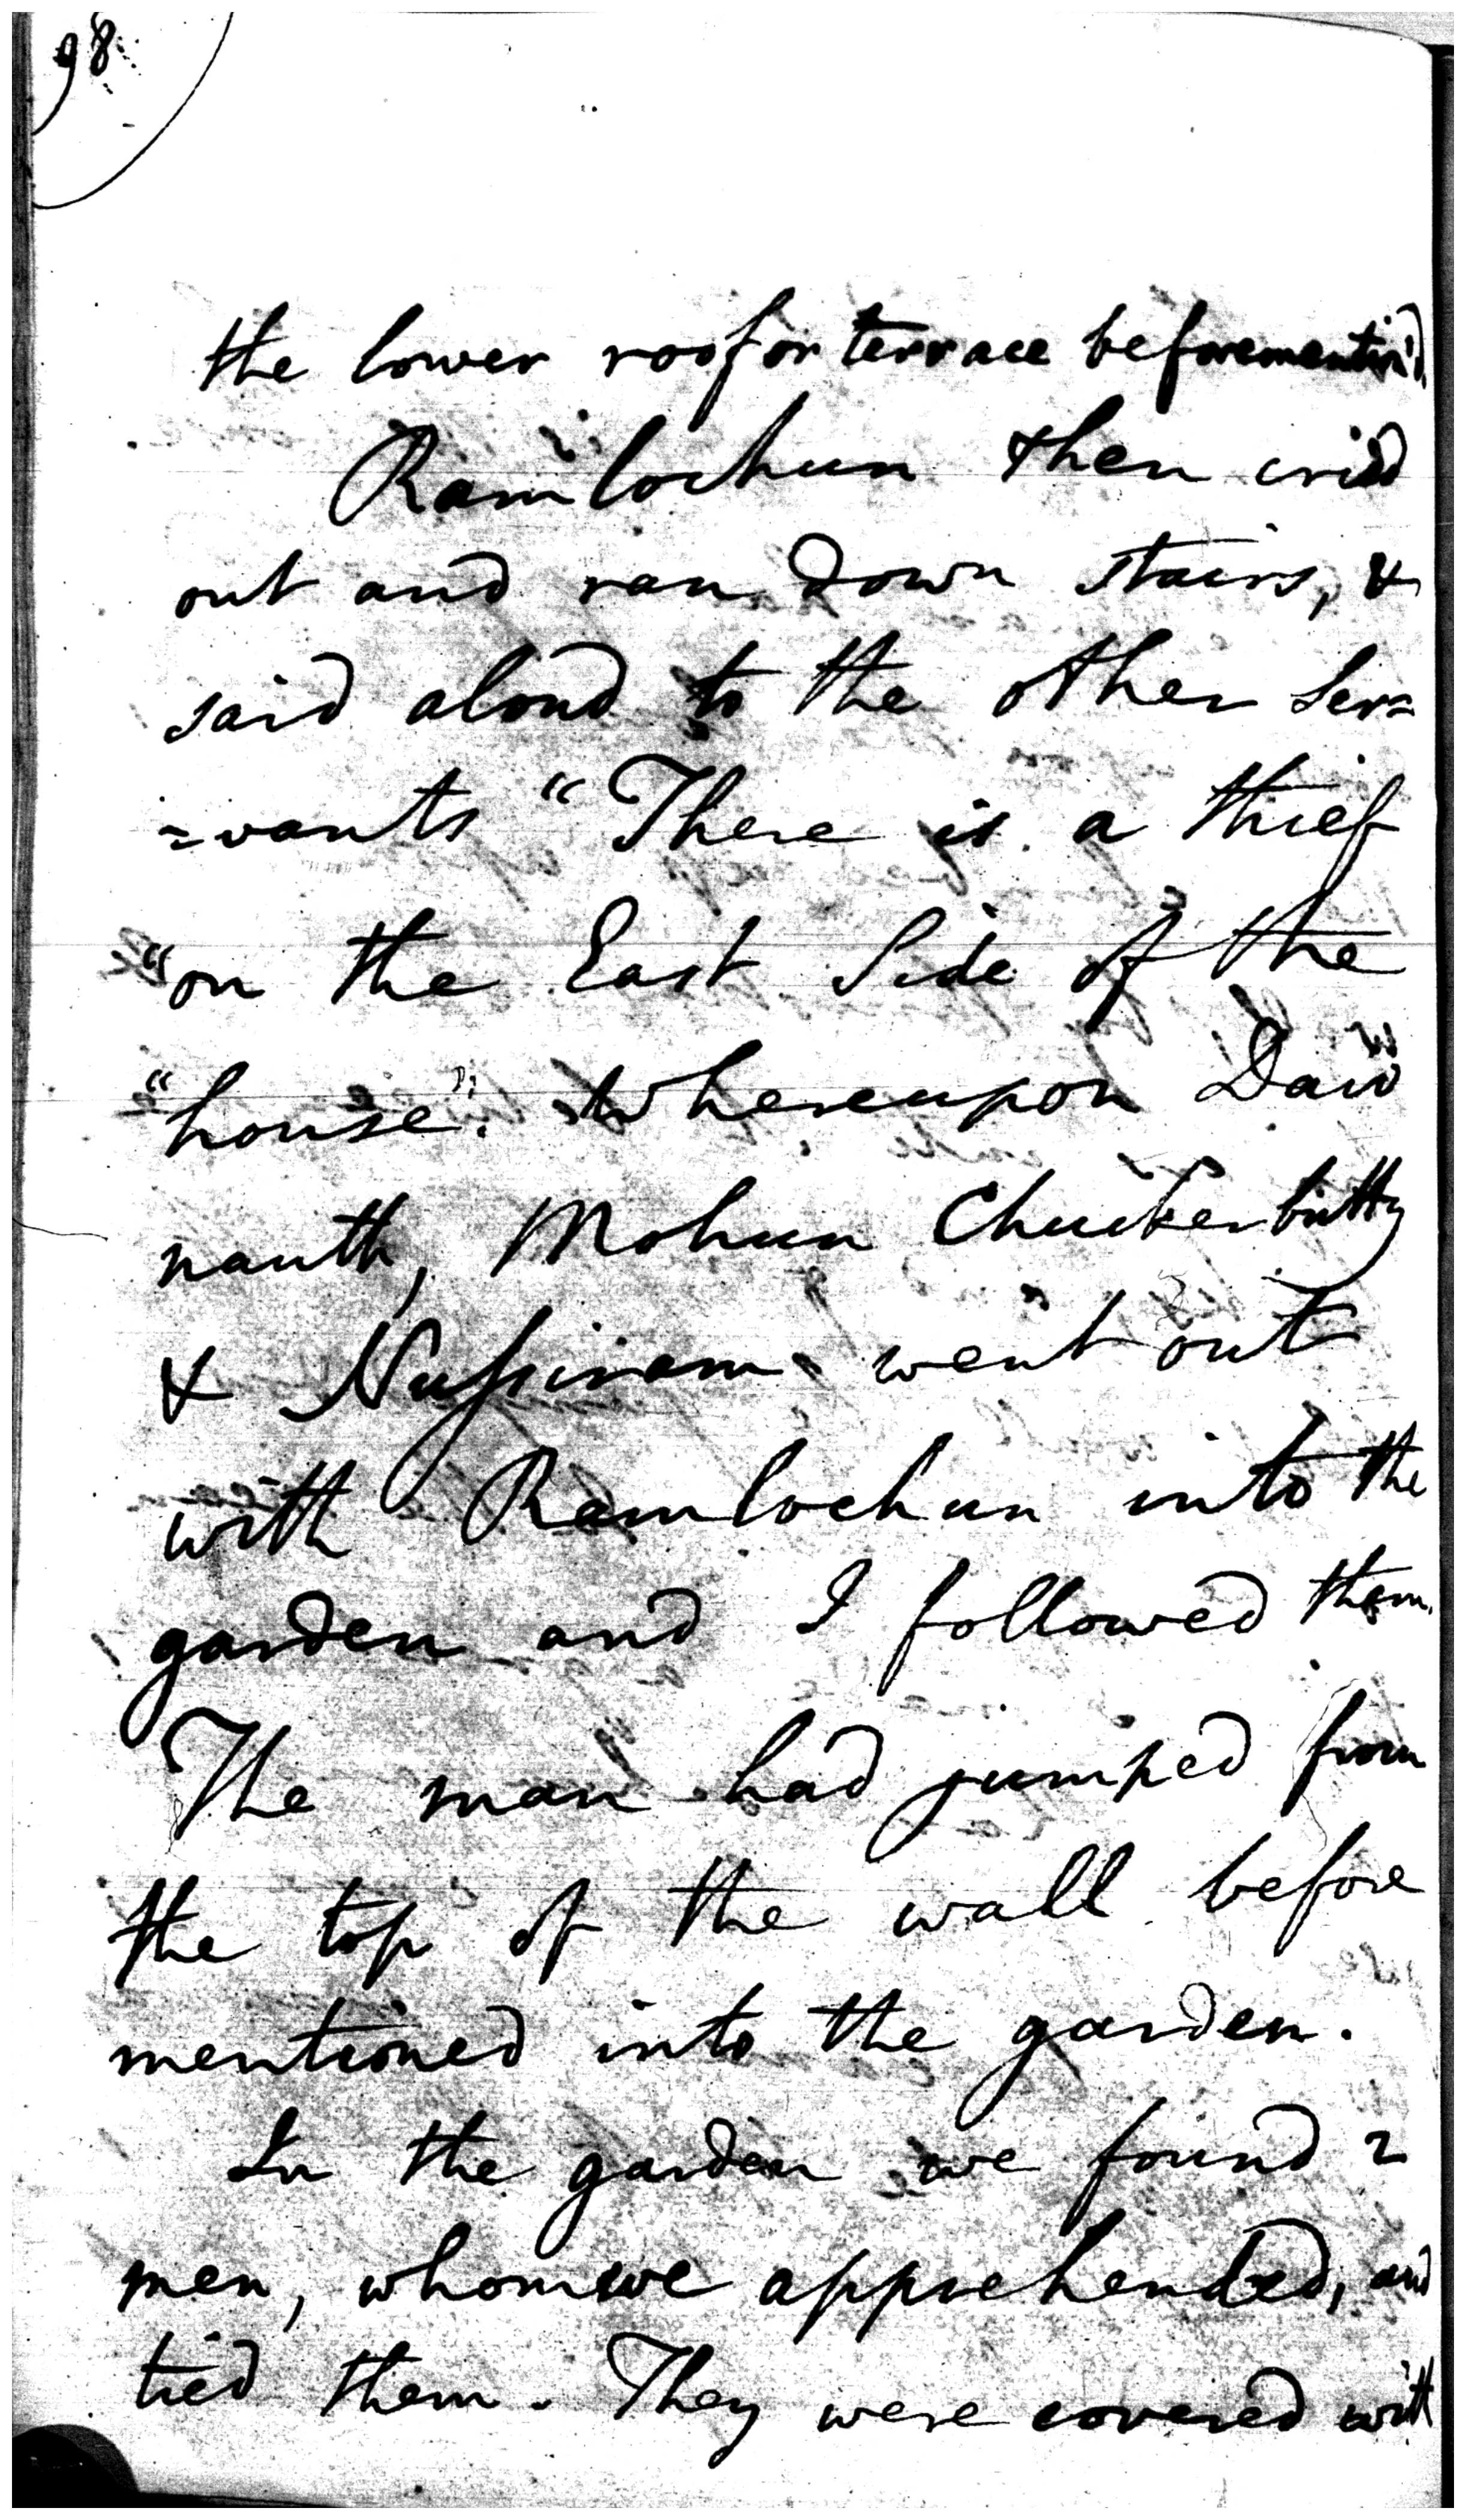 98
the lower roof or terrace beforemention'd.
Ramlochun then cried
out and ran down stairs, &
said aloud to the other Ser=
=vants "There is a thief
"on the East Side of the
"house". Whereupon Dawo
nauth, Mohun Chuckerbutty
& Nussiram went out
with Ramlochun into the
garden and I followed them.
The man had jumped from
the top of the wall before
mentioned into the garden.
In the garden we found 2
men, whom we apprehended, and
tied them. They were covered with